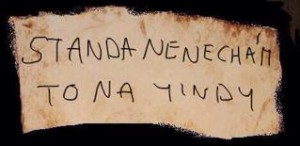 STANDA NENECHÁM
TO NA YINDY